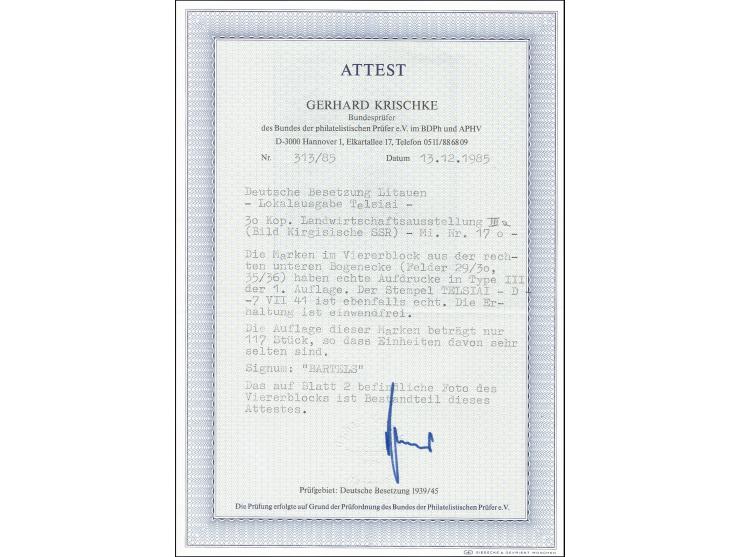 ATTEST
GERHARD KRISCHKE
Bundesprüfer
des Bundes der philatelistischen Prüfer e.V. im BDPh und APHV
D-3000 Hannover 1, Elkartallee 17, Telefon 0511/886809
Nr. 313/85 Datum 13.12.1985
Deutsche Besetzung Litauen
- Lokalausgabe Telsiai -
30 Kop. Landwirtschaftsausstellung III a
(Bild Kirgisische SSR) - Mi. Nr. 17 o -
Die Marken im Viererblock aus der rech-
ten unteren Bogenecke (Felder 29/30,
35/36) haben echte Aufdrucke in Type III
der 1. Auflage. Der Stempel TELSIAI - D -
-7 VII 41 ist ebenfalls echt. Die Er-
haltung ist einwandfrei.
Die Auflage dieser Marken beträgt nur
117 Stück, so dass Einheiten davon sehr
selten sind.
Signum: "BARTELS"
Das auf Blatt 2 befindliche Foto des
Viererblocks ist Bestandteil dieses
Attestes.
Prüfgebiet: Deutsche Besetzung 1939/45
Die Prüfung erfolgte auf Grund der Prüfordnung des Bundes der Philatelistischen Prüfer e.V.
GIESECKE & DEVRIENT MÜNCHEN